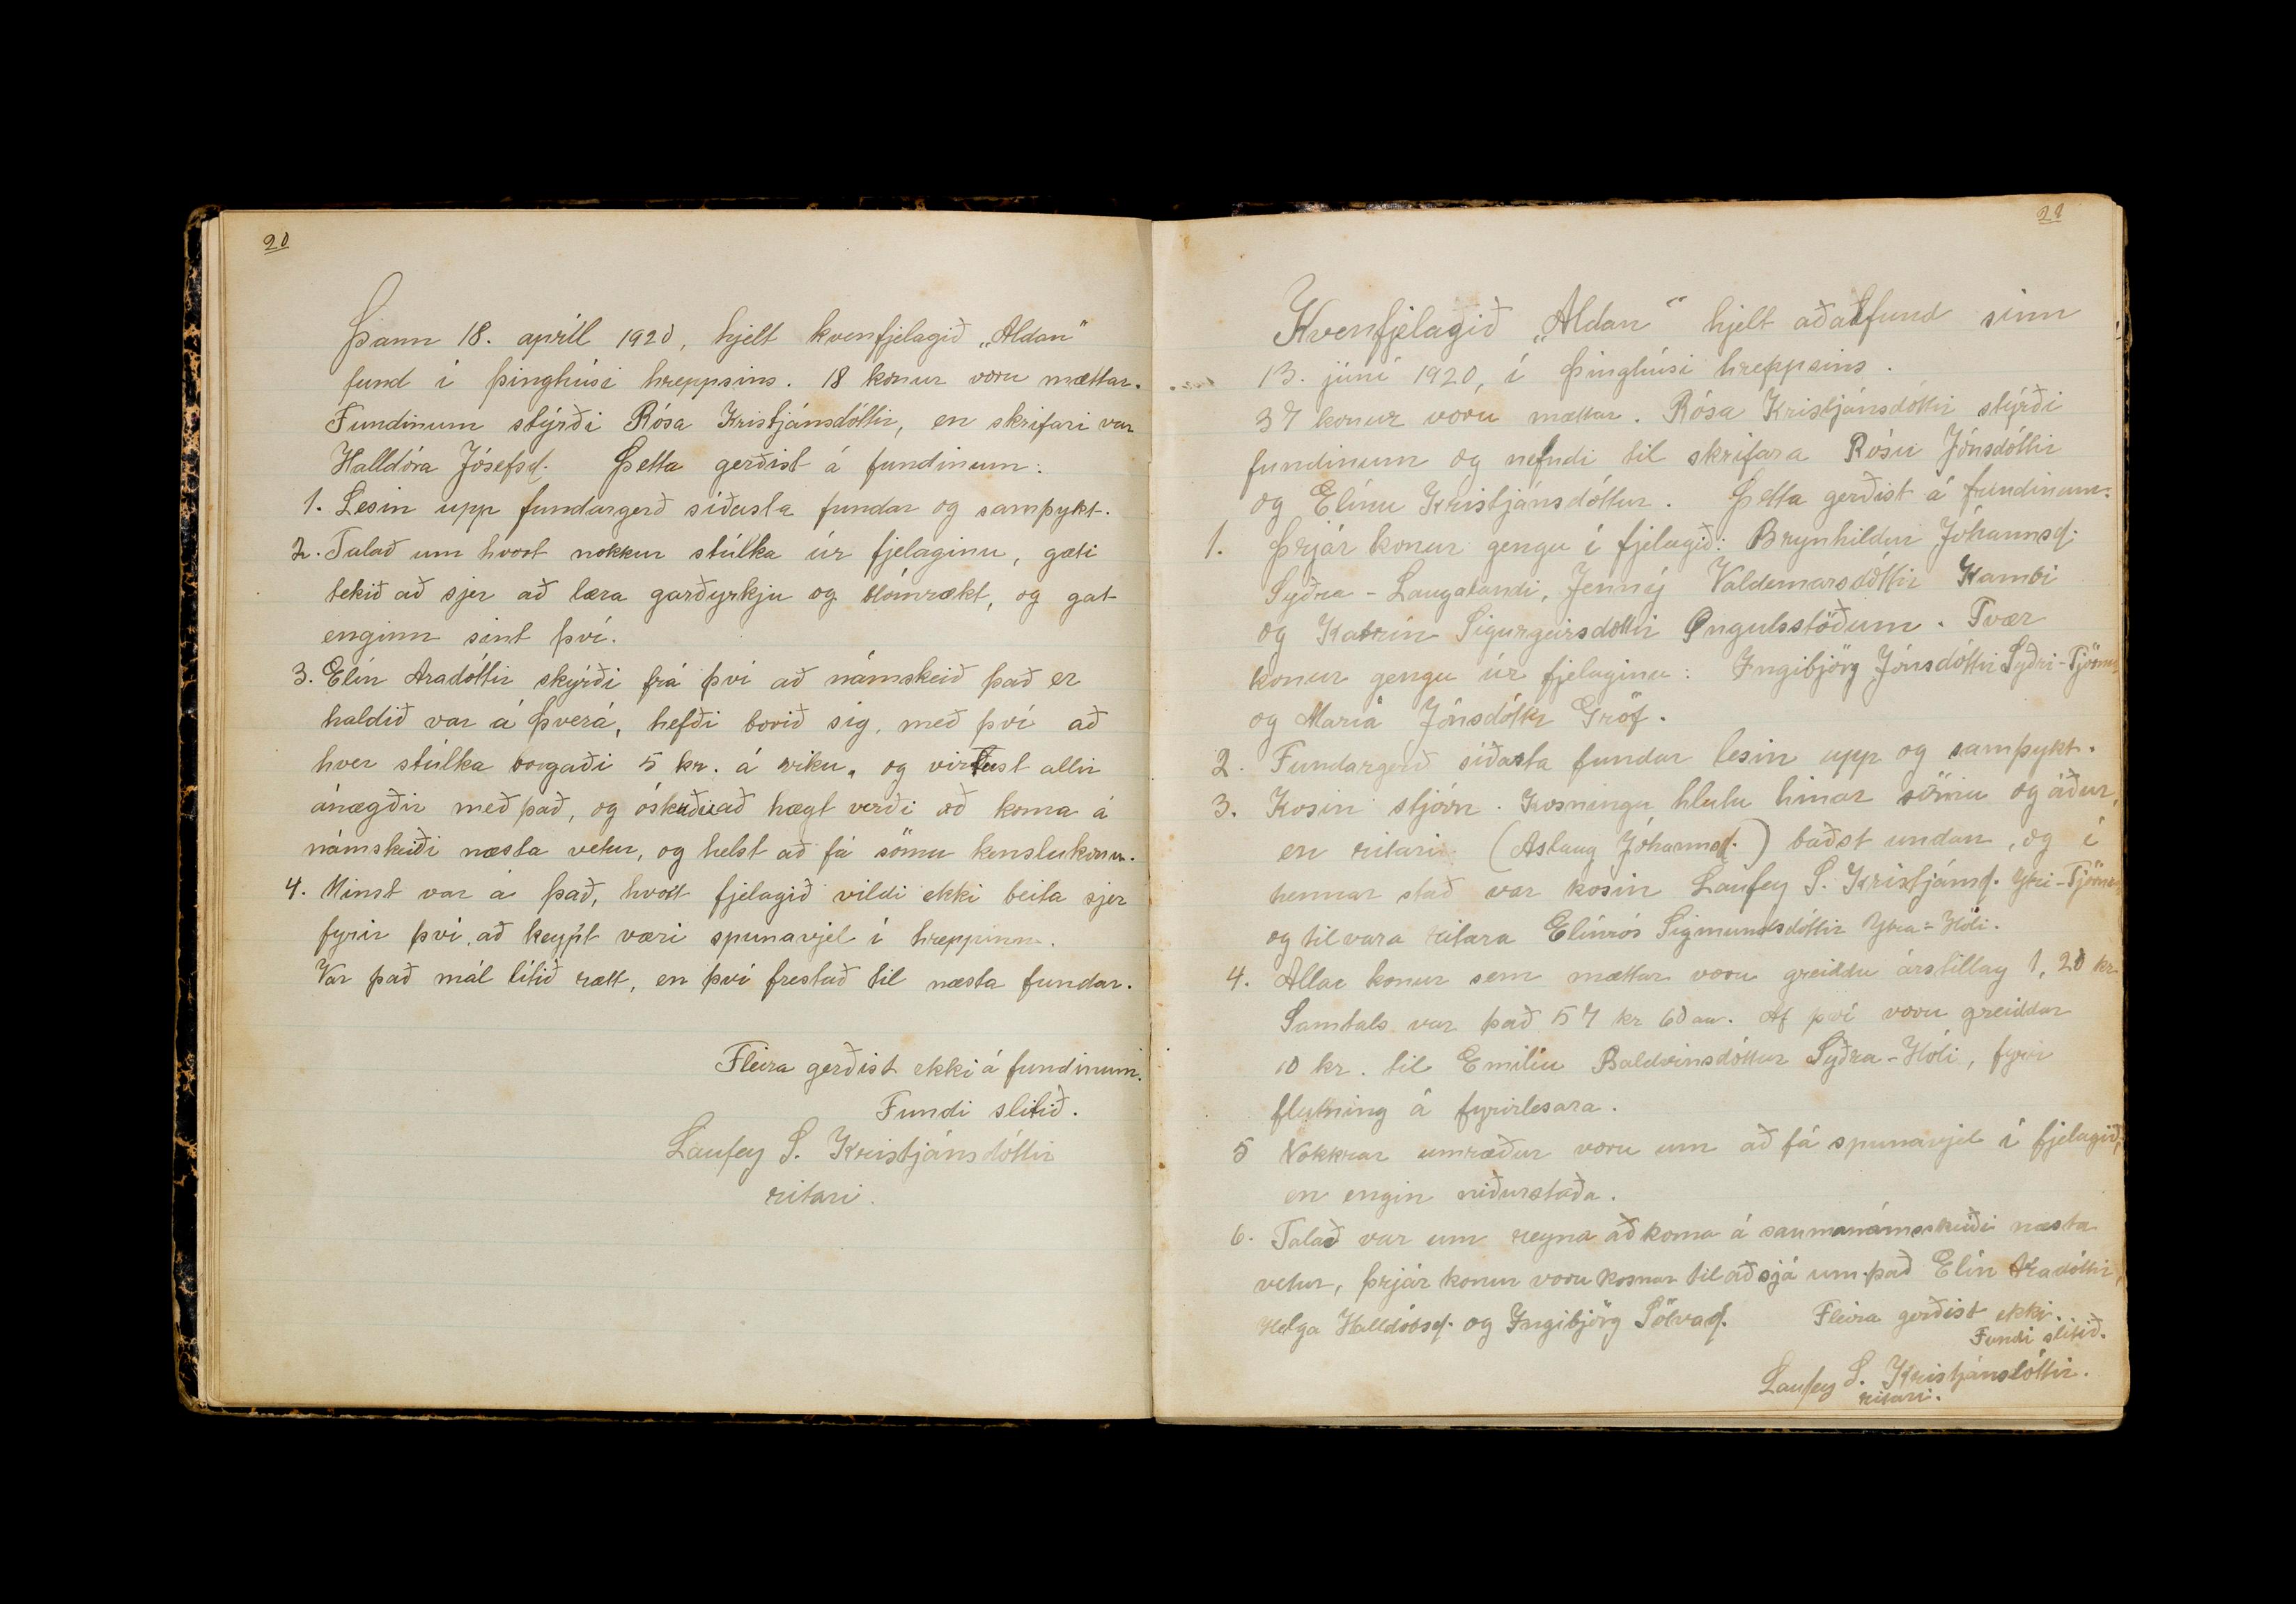 20
Þann 18. apríl 1920, hjelt kvenfjelagið „Aldan"
fund í þinghúsi hreppsins. 18 konur voru mættar.
Fundinum stýrði Rósa Kristjánsdóttir, en skrifari var
Halldóra Jósefsd. Þetta gerðist á fundinum:
1. Lesin upp fundargerð síðasta fundar og samþykt.
2. Talað um hvort nokkur stúlka úr fjelaginu, gæti
tekið að sjer að læra garðyrkju og blómrækt, og gat
enginn sint því.
3. Elín Aradóttir skýrði frá því að námskeið það er
haldið var á Þverá, hefði borið sig, með því að
hver stúlka borgaði 5 kr. á viku, og virtust allir
ánægðir með það, og óskuðu að hægt verði að koma á
námskeiði næsta vetur, og helst að fá sömu kenslukonu.
4. Minst var á það, hvort fjelagið vildi ekki beita sjer
fyrir því, að keypt væri spunavjel í hreppinn.
Var það mál lítið rætt, en því frestað til næsta fundar.
Fleira gerðist ekki á fundinum.
Fundi slitið.
Laufey S. Kristjánsdóttir
ritari.
21
Kvenfjelagið „Aldan" hjelt aðalfund sinn
13. júní 1920, í þinghúsi hreppsins.
37 konur voru mættar. Rósa Kristjánsdóttir stýrði
fundinum og nefndi til skrifara Rósu Jónsdóttir
og Elínu Kristjánsdóttur. Þetta gerðist á fundinum:
1. Þrjár konur gengu í fjelagið: Brynhildur Jóhannsd.
Syðra-Laugalandi, Jenný Valdemarsdóttir Kambi
og Katrín Sigurgeirsdóttir Öngulsstöðum. Tvær
konur gengu úr fjelaginu: Ingibjörg Jónsdóttir Syðri-Tjörnum
og María Jónsdóttir Gröf.
2. Fundargerð síðasta fundar lesin upp og samþykt.
3. Kosin stjórn. Kosningu hlutu hinar sömu og áður,
en ritari (Aslaug Jóhannsd.) baðst undan, og í
hennar stað var kosin Laufey S. Kristjánsd. Ytri-Tjörnum
og til vara ritara Elínrós Sigmundsdóttir Ytra-Hóli.
4. Allar konur sem mættar voru greiddu árstillag 1,20 kr
Samtals var það 57 kr 60 au. Af því voru greiddar
10 kr. til Emilíu Baldvinsdóttur Syðra-Hóli, fyrir
flutning á fyrirlesara.
5 Nokkrar umræður voru um að fá spunavjel í fjelagið,
en engin niðurstaða.
6. Talað var um reyna að koma á saumanámsskeiði næsta
vetur, þrjár konur voru kosnar til að sjá um það Elín Aradóttir,
Helga Halldórsd. og Ingibjörg Sölvad. Fleira gerðist ekki.
Fundi slitið.
Laufey S. Kristjánsdóttir.
ritari.